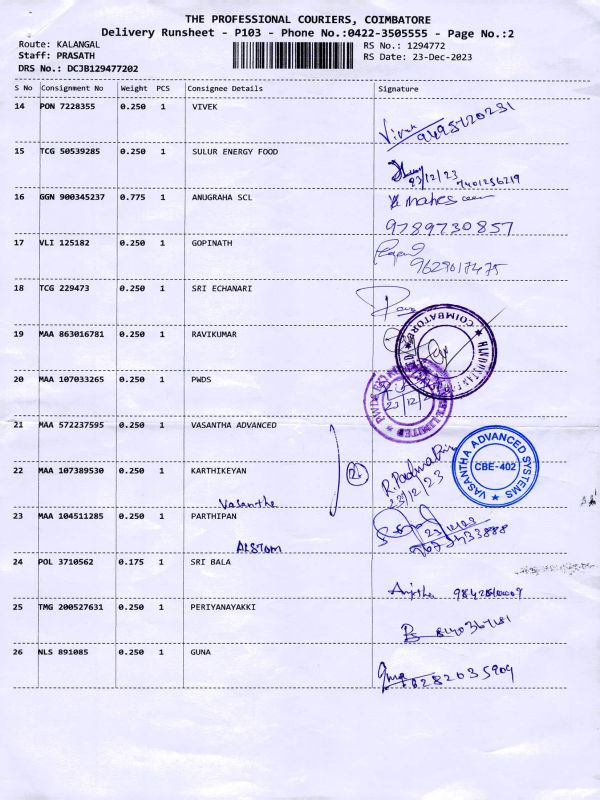 THE PROFESSIONAL COURIERS, COIMBATORE
Delivery Runsheet - P103 - Phone No.:0422-3505555 - Page No.:2
Route: KALANGAL
RS No.: 1294772
Staff: PRASATH
RS Date: 23-Dec-2023
DRS No.: DCJB129477202
S No Consignment No Weight PCS Consignee Details Signature
14 PON 7228355 0.250 1 VIVEK
Vivek
15 TCG 50539285 0.250 1 SULUR ENERGY FOOD
23/12/23
7401256219
16 GGN 900345237 0.775 1 ANUGRAHA SCL
9789730857
17 VLI 125182 0.250 1 GOPINATH
9629017475
18 TCG 229473 0.250 1 SRI ECHANARI
19 MAA 863016781 0.250 1 RAVIKUMAR
COIMBATORE
20 MAA 107033265 0.250 1 PWDS
23/12/2
LIMITED
21 MAA 572237595 0.250 1 VASANTHA ADVANCED
VASANTHA ADVANCED SYSTEMS
CBE-402
22 MAA 107389530 0.250 1 KARTHIKEYAN
23/12/23
Vasantha
23 MAA 104511285 0.250 1 PARTHIPAN
23/12/23
ALSTOM
24 POL 3710562 0.175 1 SRI BALA
25 TMG 200527631 0.250 1 PERIYANAYAKKI
26 NLS 891085 0.250 1 GUNA
Guna